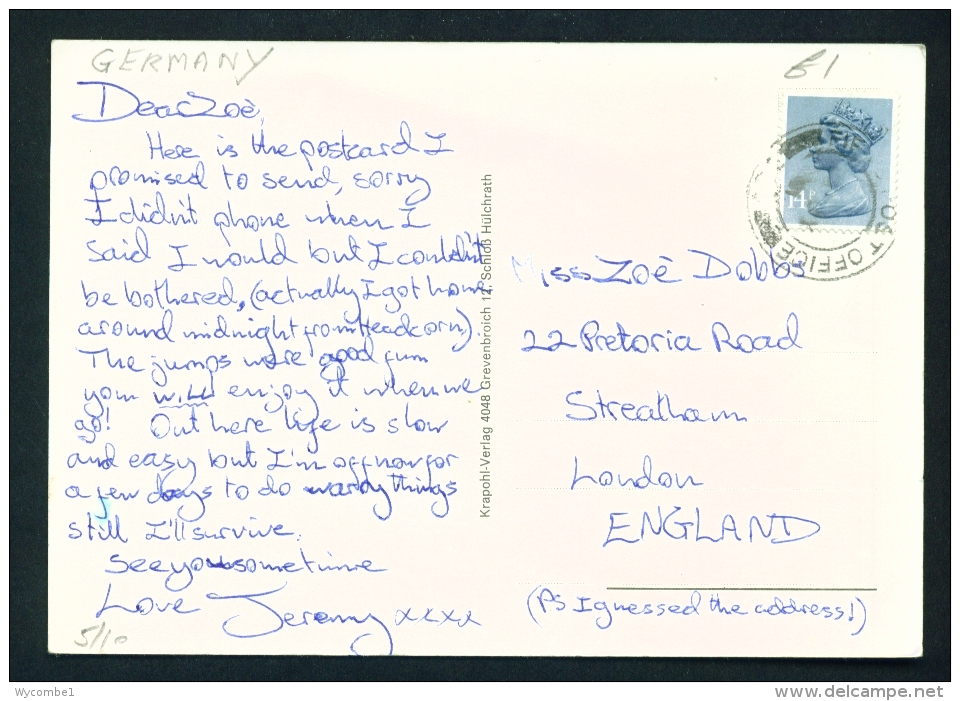 GERMANY
£1
Dear Zoë,
Here is the postcard I
promised to send, sorry
I didn't phone when I
said I would but I couldn't
be bothered, (actually I got home
around midnight from Headcorn).
The jumps were good fun
you will enjoy it when we
go! Out here life is slow
and easy but I'm off now for
a few days to do wardy things
still I'll survive.
See you sometime
Love Jeremy xxxx
5/10
Krapohl-Verlag 4048 Grevenbroich 12, Schloß Hülchrath
14P
POST OFFICE
Miss Zoë Dobbs
22 Pretoria Road
Streatham
London
ENGLAND
(PS I guessed the address!)
Wycombe1
www.delcampe.net